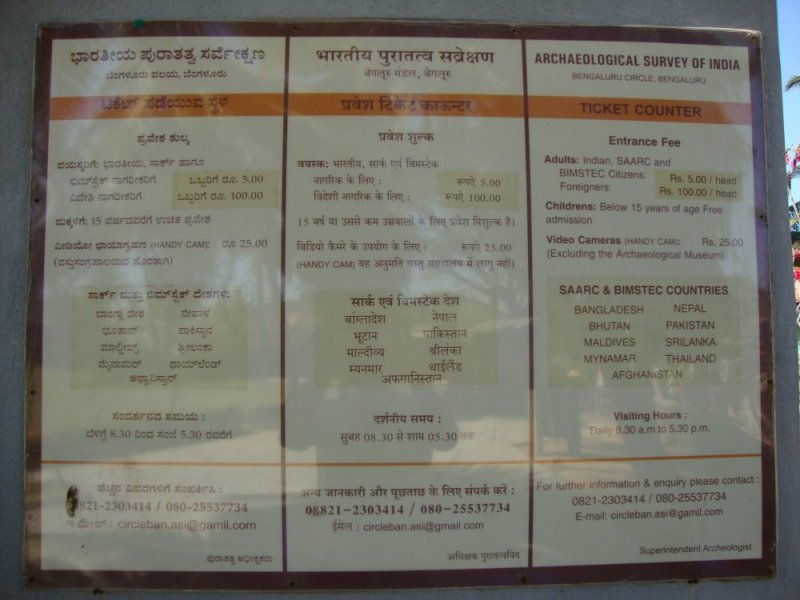 ಭಾರತೀಯ ಪುರಾತತ್ವ ಸರ್ವೇಕ್ಷಣ
ಬೆಂಗಳೂರು ವಲಯ, ಬೆಂಗಳೂರು
ಟಿಕೆಟ್ ಪಡೆಯುವ ಸ್ಥಳ
ಪ್ರವೇಶ ಶುಲ್ಕ
ವಯಸ್ಕರಿಗೆ: ಭಾರತೀಯ, ಸಾರ್ಕ್ ಹಾಗೂ
ಬಿಮ್‌ಸ್ಟೆಕ್ ನಾಗರೀಕರಿಗೆ ಒಬ್ಬರಿಗೆ ರೂ. 5.00
ವಿದೇಶಿ ನಾಗರೀಕರಿಗೆ ಒಬ್ಬರಿಗೆ ರೂ. 100.00
ಮಕ್ಕಳಿಗೆ: 15 ವರ್ಷದವರೆಗೆ ಉಚಿತ ಪ್ರವೇಶ
ವೀಡಿಯೋ ಛಾಯಾಗ್ರಹಣ (HANDY CAM): ರೂ 25.00
(ವಸ್ತುಸಂಗ್ರಹಾಲಯದ ಹೊರತಾಗಿ)
ಸಾರ್ಕ್ ಮತ್ತು ಬಿಮ್‌ಸ್ಟೆಕ್ ದೇಶಗಳು
ಬಾಂಗ್ಲಾ ದೇಶ ನೇಪಾಳ
ಭೂತಾನ್ ಪಾಕಿಸ್ತಾನ
ಮಾಲ್ಡೀವ್ಸ್ ಶ್ರೀಲಂಕಾ
ಮೈನಾಮರ್ ಥಾಯ್‌ಲೆಂಡ್
ಅಫ್ಘಾನಿಸ್ತಾನ್
ಸಂದರ್ಶನದ ಸಮಯ :
ಬೆಳಿಗ್ಗೆ 8.30 ರಿಂದ ಸಂಜೆ 5.30 ರವರೆಗೆ
ಹೆಚ್ಚಿನ ವಿವರಗಳಿಗೆ ಸಂಪರ್ಕಿಸಿ :
0821-2303414 / 080-25537734
ಇ ಮೇಲ್ : circleban.asi@gamil.com
ಪುರಾತತ್ವ ಅಧೀಕ್ಷಕರು
भारतीय पुरातत्व सवेक्षण
बेंगलूरु मंडल, बेंगलूरु
प्रवेश टिकेट काऊन्टर
प्रवेश शुल्क
वयस्क: भारतीय, सार्क एवं बिमस्टेक
नागरिक के लिए : रूपऐ 5.00
विदेशी नागरिक के लिए : रूपऐ 100.00
15 वर्ष या उससे कम उम्रवालों के लिए प्रवेश निशुल्क है।
विडियो कैमरे के उपयोग के लिए : रूपऐ 25.00
(HANDY CAM) यह अनुमति वस्तु संग्रहालय में लागु नहीं।
सार्क एवं बिमस्टेक देश
बांग्लादेश नेपाल
भूटान पाकिस्तान
माल्दीव्य श्रीलंका
म्यनमार थाईलेंड
अफगानिस्तान
दर्शनीय समय :
सुबह 08.30 से शाम 05.30 तक
अन्य जानकारी और पूछताछ के लिए संपर्क करें :
08821-2303414 / 080-25537734
ईमेल : circleban.asi@gmail.com
अधिक्षक पुरातत्वविद
ARCHAEOLOGICAL SURVEY OF INDIA
BENGALURU CIRCLE, BENGALURU
TICKET COUNTER
Entrance Fee
Adults: Indian, SAARC and
BIMSTEC Citizens: Rs. 5.00 / head
Foreigners: Rs. 100.00 / head
Childrens: Below 15 years of age Free
admission
Video Cameras (HANDY CAM): Rs. 25.00
(Excluding the Archaeological Museum)
SAARC & BIMSTEC COUNTRIES
BANGLADESH NEPAL
BHUTAN PAKISTAN
MALDIVES SRILANKA
MYNAMAR THAILAND
AFGHANISTAN
Visiting Hours :
Daily 8.30 a.m to 5.30 p.m.
For further information & enquiry please contact :
0821-2303414 / 080-25537734
E-mail: circleban.asi@gmail.com
Superintendent Archeologist